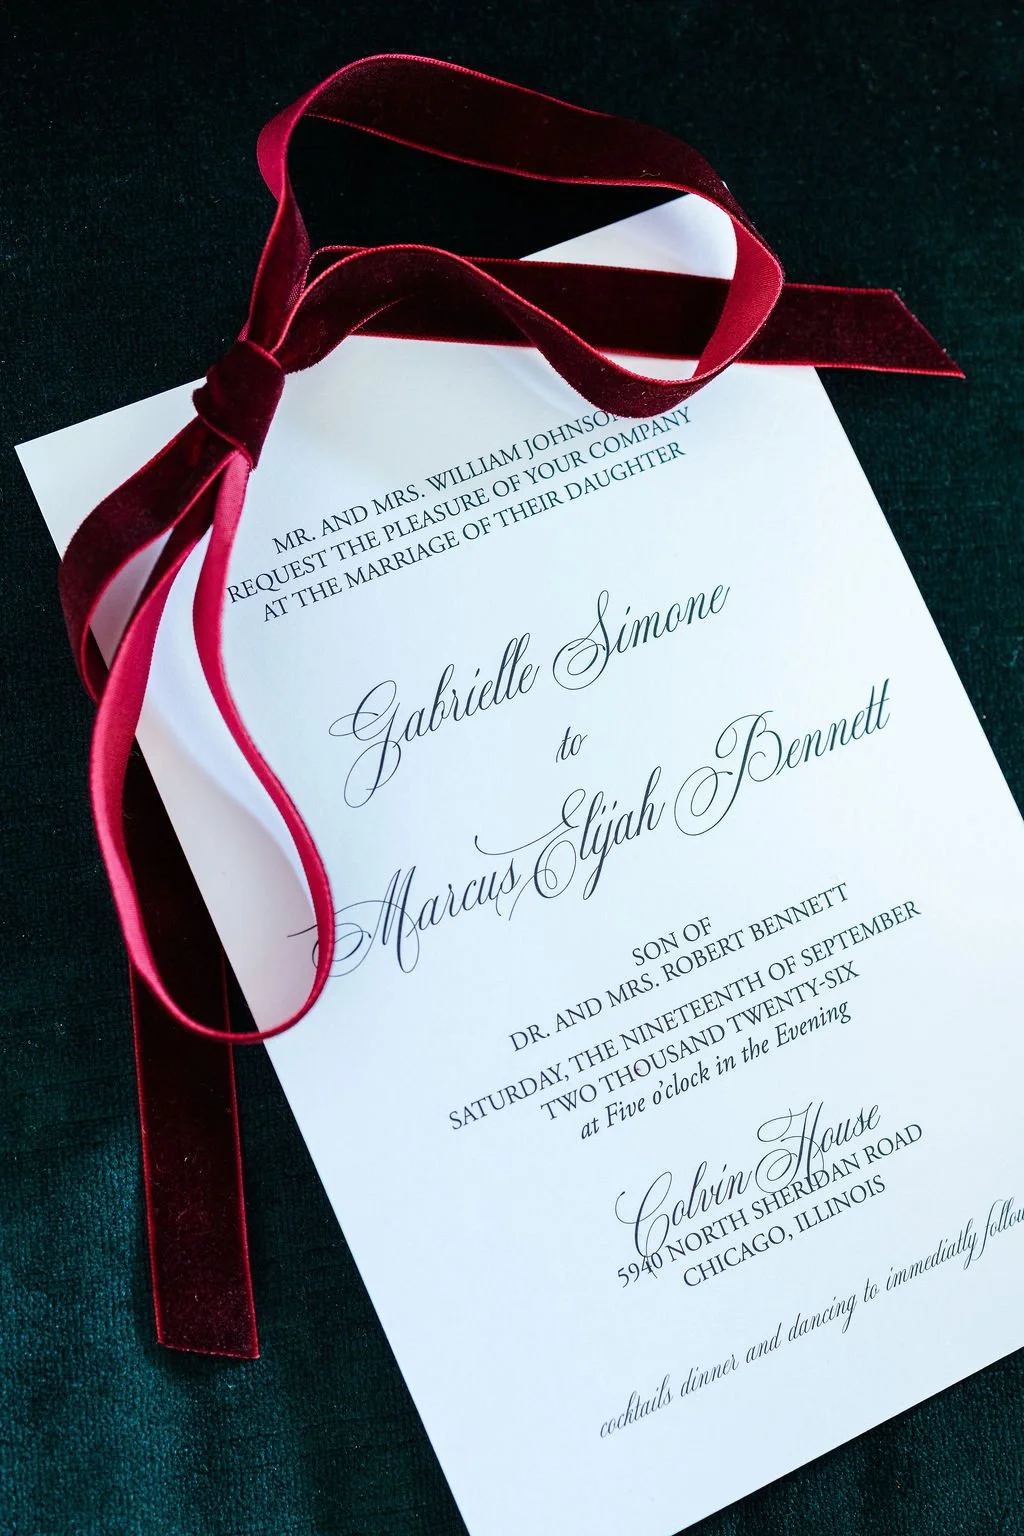 MR. AND MRS. WILLIAM JOHNSON
REQUEST THE PLEASURE OF YOUR COMPANY
AT THE MARRIAGE OF THEIR DAUGHTER
Gabrielle Simone
to
Marcus Elijah Bennett
SON OF
DR. AND MRS. ROBERT BENNETT
SATURDAY, THE NINETEENTH OF SEPTEMBER
TWO THOUSAND TWENTY-SIX
at Five o'clock in the Evening
Colvin House
5940 NORTH SHERIDAN ROAD
CHICAGO, ILLINOIS
cocktails dinner and dancing to immediatly follow